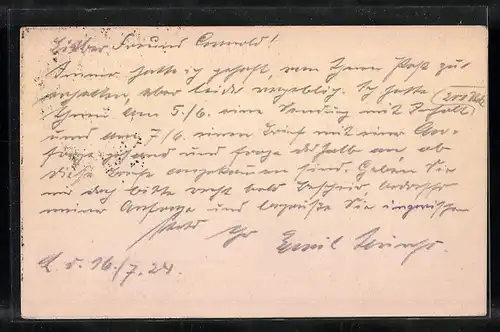 Lieber Freund Oswald!
Immer hatte ich gehofft, von Ihnen Post zu
erhalten, aber leider vergeblich. Ich hatte
Ihnen am 5./6. eine Sendung mit Inhalt
und am 7/6. einen Brief mit einer An-
frage gesandt und frage deshalb an ob
diese Briefe angekommen sind. Geben Sie
mir doch bitte recht bald Bescheid, betreffs
meiner Anfrage und begrüße Sie inzwischen
Ihr Emil
L. d. 16./7.24.